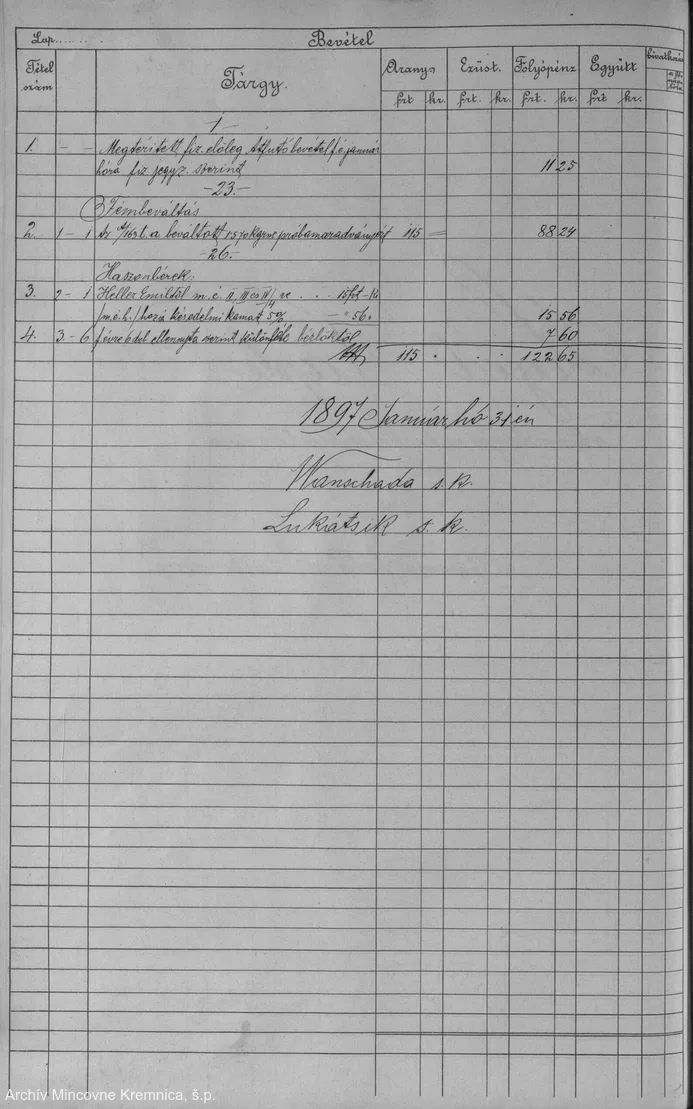 Lap..........
Bevétel
Tétel szám
Tárgy.
Arany
Ezüst.
Folyópénz
Együtt
frt kr. frt. kr. frt. kr. frt kr.
1
1. - - Megtérített fiz. előleg Átfutó bevétel f. é. január
hóra fiz. jegyz. szerint 11 25
-23.-
Fémbeváltás
2. 1 - 1 Az a beváltott próbamaradványért 115 = 88 24
-26.-
Haszonbérek:
3. 2 - 1 Heller Emiltől m. é. II, III és IV/4 re . . . 15 frt - kr
/m. é. h./ hozzá késedelmi kamat 5% - " 56 " 15 56
4. 3 - 6 f. évre 6 db ellennyugta szerint különféle bérlőktől 7 60
115 . . . 122 65
1897 Január hó 31 én
Wanschada s. k.
Lukátsik s. k.
Archív Mincovne Kremnica, š.p.